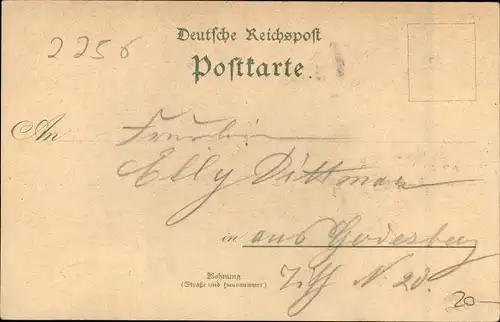 2256
Deutsche Reichspost
Postkarte.
An Fräulein
Elly Dittmar
in aus Godesberg
Wohnung
(Straße und Hausnummer)
N. 20.
20